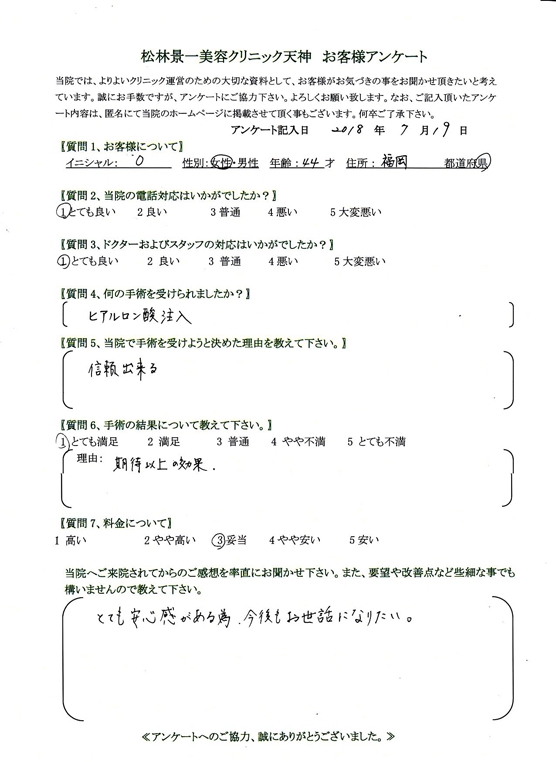 松林景一美容クリニック天神　お客様アンケート
当院では、よりよいクリニック運営のための大切な資料として、お客様がお気づきの事をお聞かせ頂きたいと考え
ています。誠にお手数ですが、アンケートにご協力下さい。よろしくお願い致します。なお、ご記入頂いたアンケ
ート内容は、匿名にて当院のホームページに掲載させて頂く事もございます。何卒ご了承下さい。
アンケート記入日　2018 年 7 月 19 日
〖質問1、お客様について〗
イニシャル： O 性別：女性・男性 年齢：44 才 住所： 福岡 都道府県
〖質問2、当院の電話対応はいかがでしたか？〗
1とても良い 2 良い 3 普通 4 悪い 5 大変悪い
〖質問3、ドクターおよびスタッフの対応はいかがでしたか？〗
1とても良い 2 良い 3 普通 4 悪い 5 大変悪い
〖質問4、何の手術を受けられましたか？〗
ヒアルロン酸注入
〖質問5、当院で手術を受けようと決めた理由を教えて下さい。〗
信頼出来る
〖質問6、手術の結果について教えて下さい。〗
1とても満足 2 満足 3 普通 4 やや不満 5 とても不満
理由： 期待以上の効果.
〖質問7、料金について〗
1 高い 2 やや高い 3 妥当 4 やや安い 5 安い
当院へご来院されてからのご感想を率直にお聞かせ下さい。また、要望や改善点など些細な事でも
構いませんので教えて下さい。
とても安心感がある為、今後もお世話になりたい。
≪アンケートへのご協力、誠にありがとうございました。≫